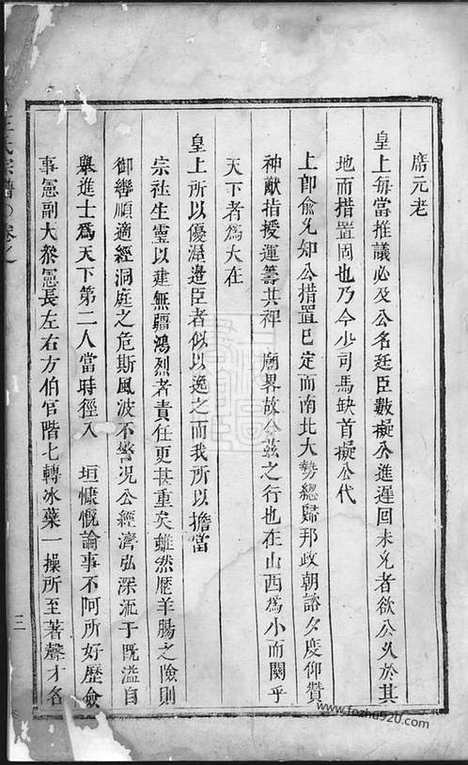 席元老
皇上每當推議必及公名廷臣數擬公進遲回未允者欲公久於其
地而措置固也乃今少司馬缺首擬公代
上卽俞允知公措置已定而南北大勢總歸邦政朝諮夕慶仰贊
神猷指授運籌其裨 廟畧故今茲之行也在山西爲小而關乎
天下者爲大在
皇上所以優渥邊臣者似以逸之而我所以擔當
宗社生靈以建無疆鴻烈者責任更甚重矣雖然歷羊腸之險則
御轡順適經洞庭之危斯風波不警況公經濟弘深洊于既溢自
舉進士爲天下第二人當時徑入 垣慷慨論事不阿所好歷僉
事憲副大叅憲長左右方伯官階七轉冰蘗一操所至著聲才名
氏宗譜 卷之
三
www.fozhu920.com